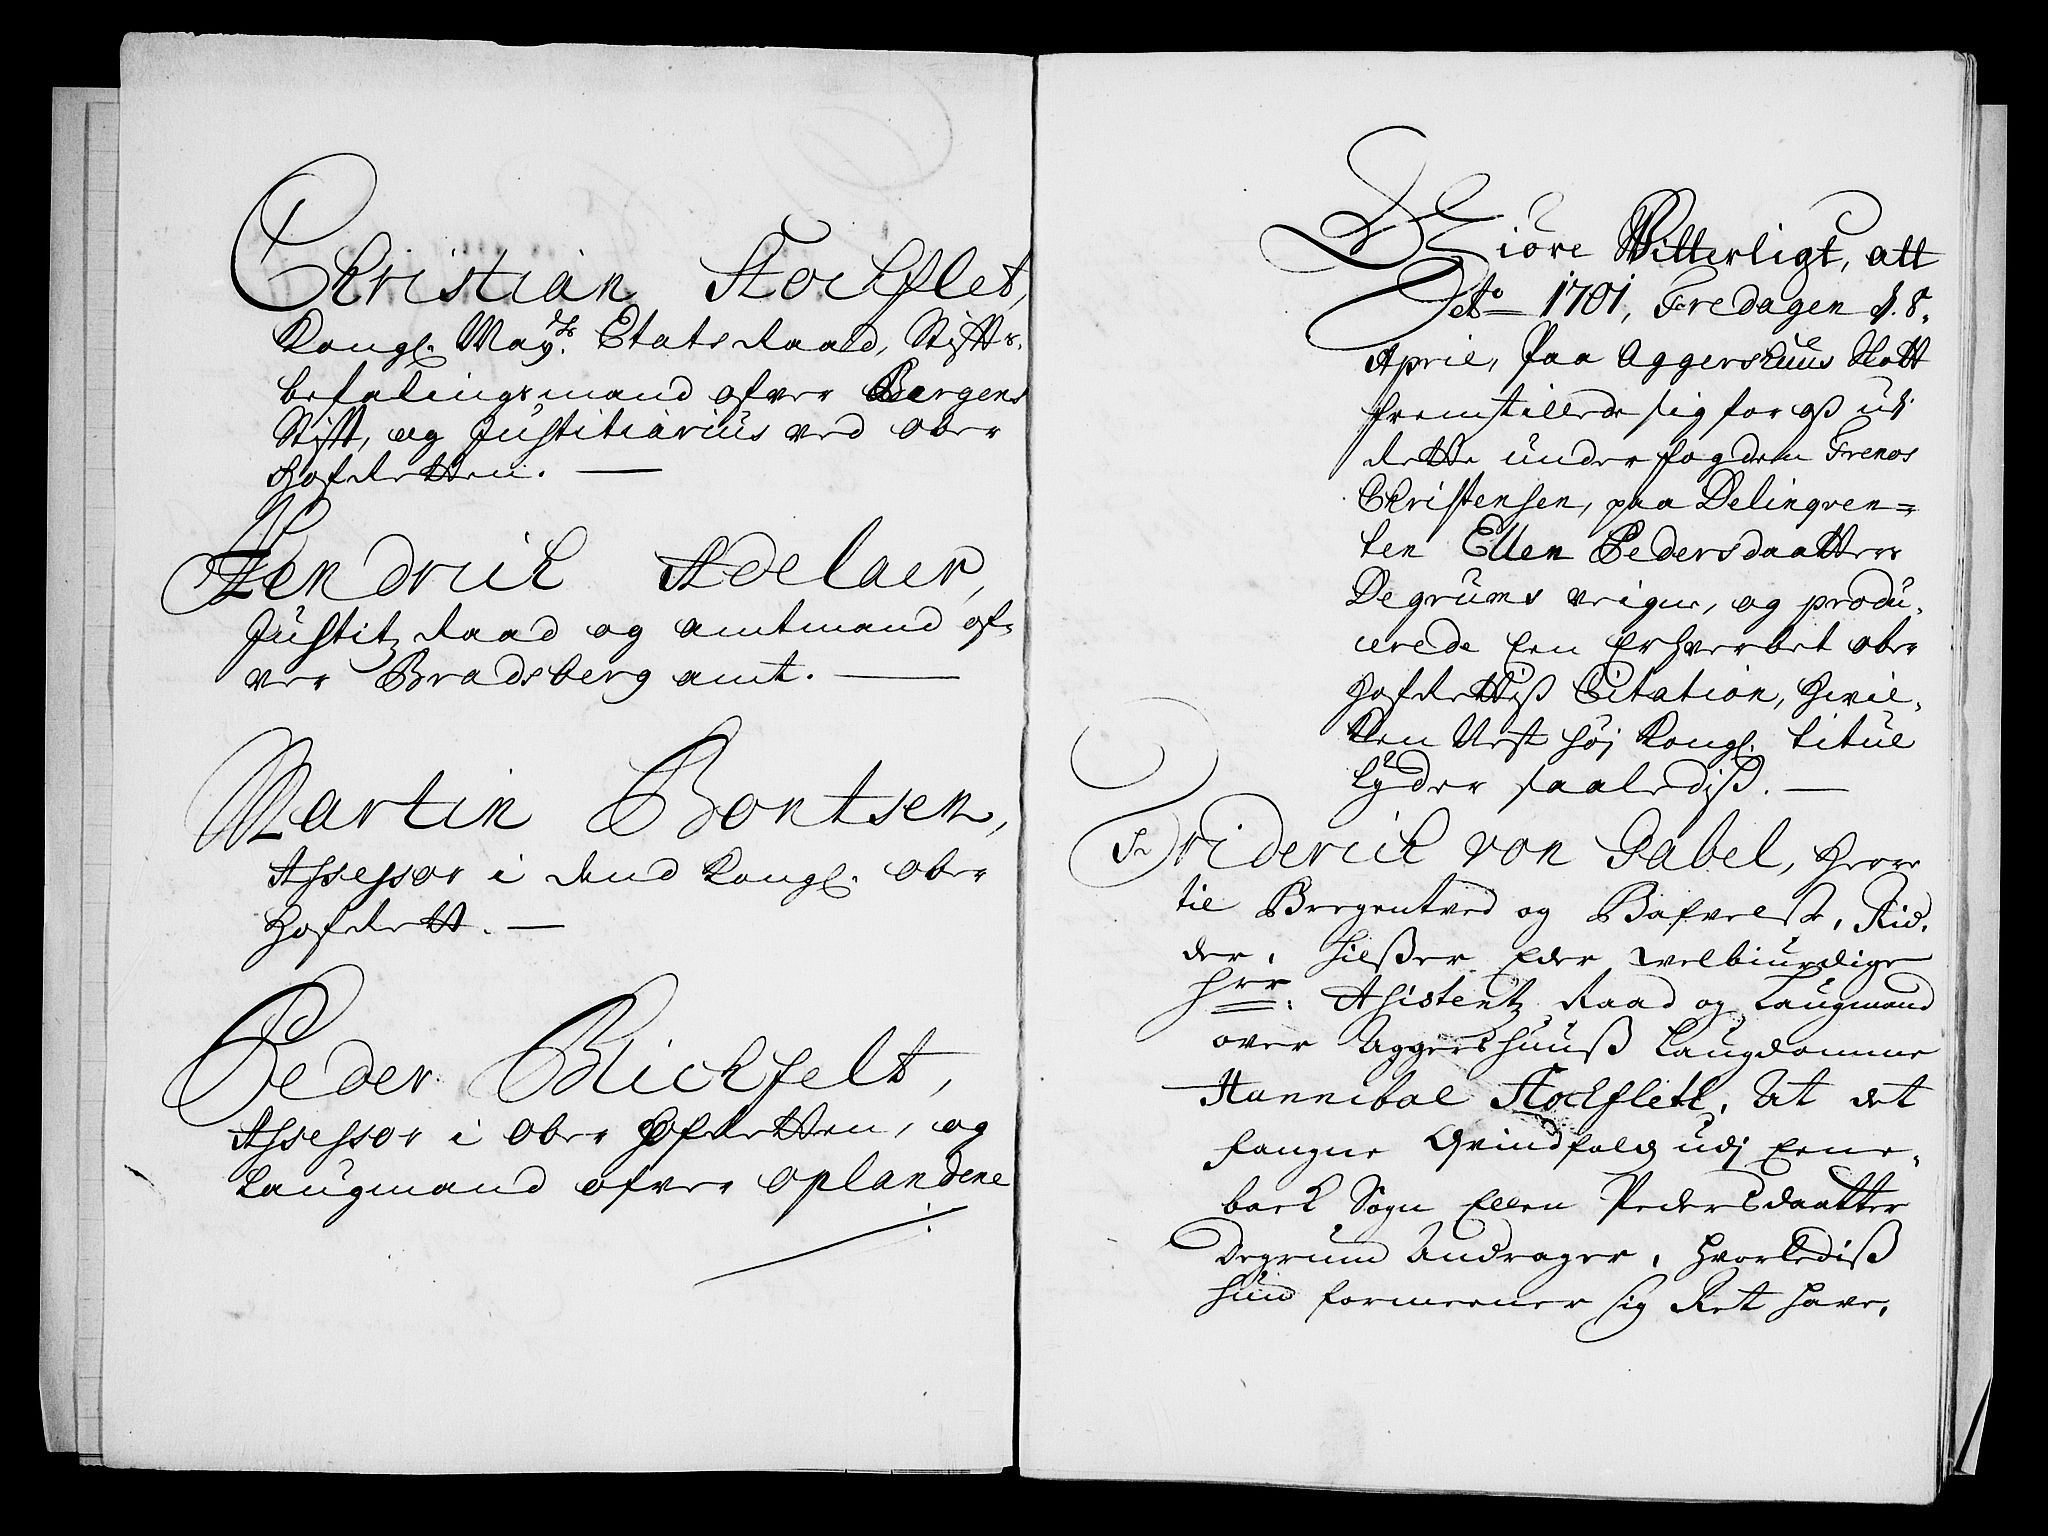 Christian Stockflet,
Kongl. May.ts Etats Raad, Stifft-
befalingsmand ofver Bergens
Stift, og Justitiarius ved ober
Hofretten.
Hendrich Adelaer,
Justitz Raad og amtmand of-
ver Bradsberg amt.
Martin Bontsen,
Assessor i dend Kongl. ober
Hofrett.
Peder Blichfelt,
Assessor i Ober Hofretten, og
Laugmand ofver oplandene
Giöre Witterligt, att
Ao 1701, Fredagen d. 8.
April, paa Aggershuus Slott
fremstillede sig for oß udj
Rette underfogden
Christensen, paa Delinqven=
ten Ellen Pedersdaatters
Degrums veigne, og produ-
cerede een Erhverbet ober
Hofrettiß Citation, hvil-
ken Nest høj Kongl. titul
lyder saalediß.
Friderich von Gabel, Herre
til Bregentved og, Rid-
der, hilßer Eder welbiurdige
Hrr: Assistentz Raad og Laugmand
over Aggershuuß Laugdomme
Hannibal Stockfleth, At det
fangne Qvindfolch udj Eene-
bach Sogn Ellen Pedersdaatter
Degrum Andrager, hvorlediß
hun formeener sig Ret have,